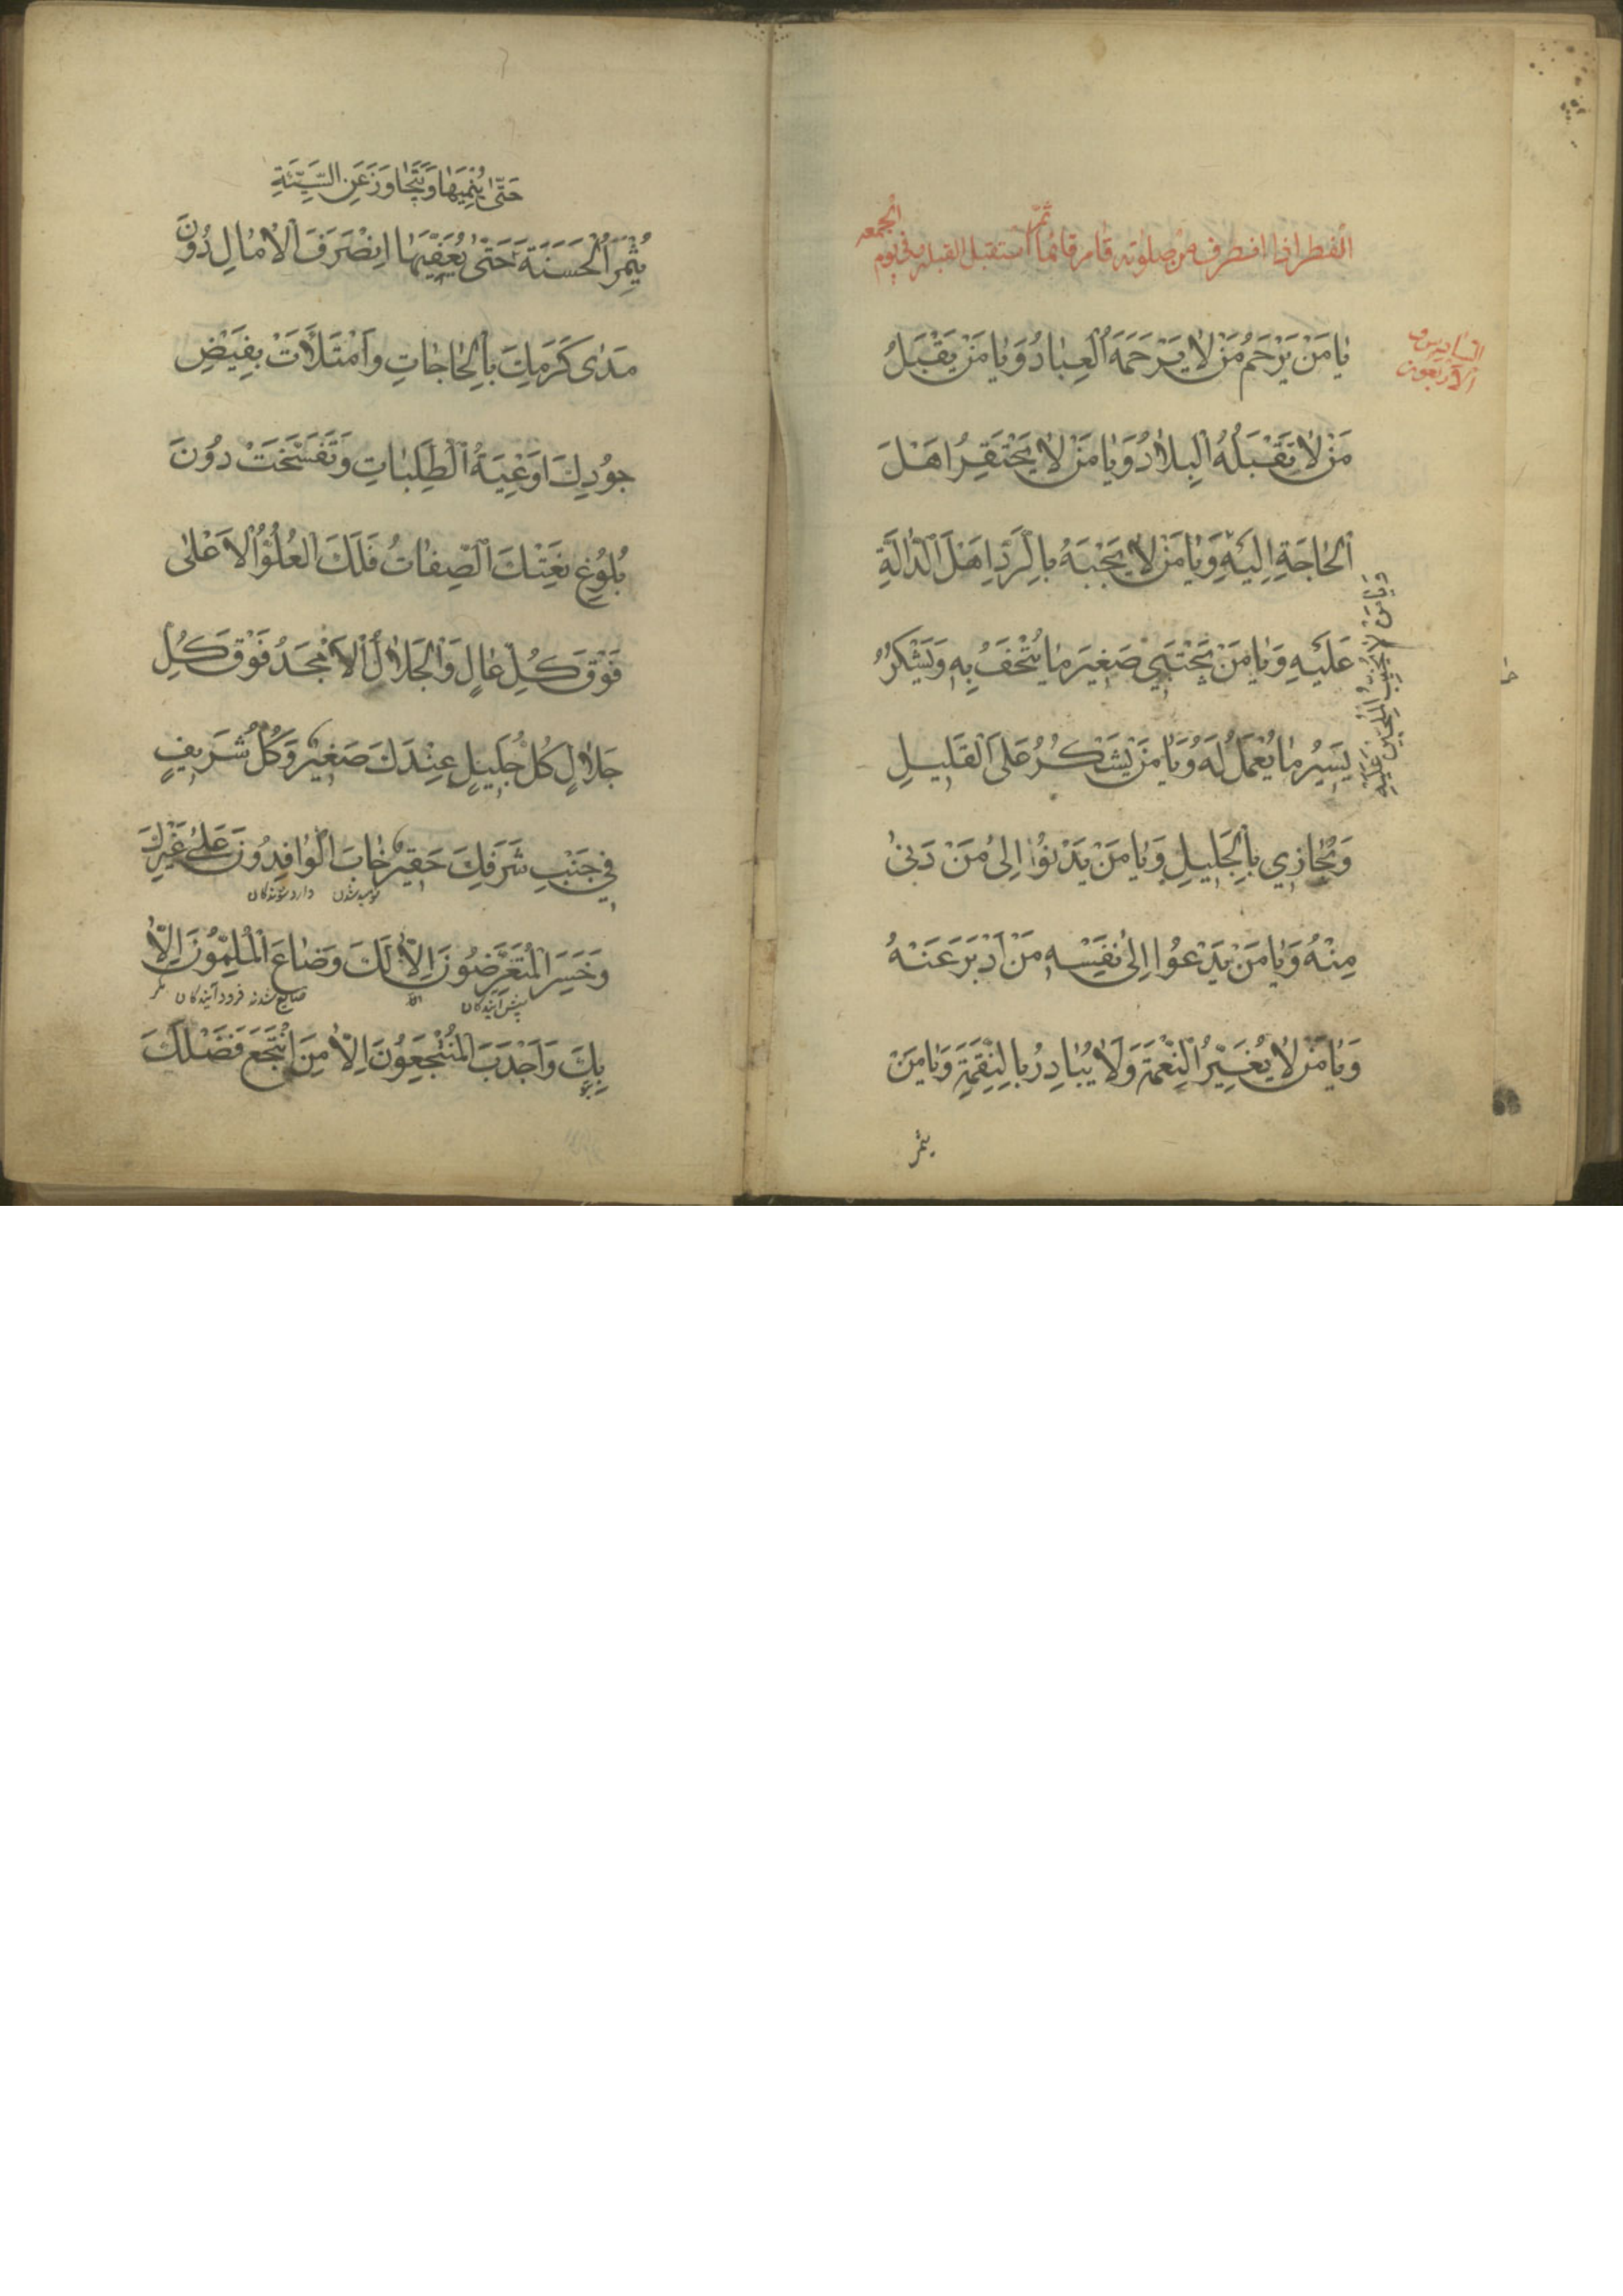 الجمعه
ثم
الفطر اذا انصرف من صلوته قام قائما استقبل القبله و فى يوم
السادس و
الاربعون
يٰا مَنْ يَرْحَمُ مَنْ لاٰ يَرْحَمُهُ الْعِبٰادُ وَيٰا مَنْ يَقْبَلُ
مَنْ لاٰ تَقْبَلُهُ الْبِلاٰدُ وَيٰا مَنْ لاٰ يَحْتَقِرُ اَهْلَ
الْحٰاجَةِ اِلَيْهِ وَيٰا مَنْ لاٰ يَجْبَهُ بِالرَّدِّ اَهْلَ الدّٰالَّةِ
وَيٰا مَنْ لاٰ يُخَيِّبُ الْمُلِحّينَ عَلَيْهِ
عَلَيْهِ وَيٰا مَنْ يَجْتَبي صَغيرَ مٰا يُتْحَفُ بِهِ وَيَشْكُرُ
يَسيرَ مٰا يُعْمَلُ لَهُ وَيٰا مَنْ يَشْكُرُ عَلَى الْقَليلِ
وَيُجٰازي بِالْجَليلِ وَيٰا مَنْ يَدْنُوا اِلىٰ مَنْ دَنىٰ
مِنْهُ وَيٰا مَنْ يَدْعُوا اِلىٰ نَفْسِهِ مَنْ اَدْبَرَ عَنْهُ
وَيٰا مَنْ لاٰ يُغَيِّرُ النِّعْمَةَ وَلاٰ يُبٰادِرُ بِالنِّقْمَةِ وَيٰا مَنْ
يثمر
حَتّىٰ يُنْمِيَهٰا وَيَتَجٰاوَزُ عَنِ السَّيِّئَةِ
يُثْمِرُ الْحَسَنَةَ حَتّىٰ يُعَفِّيَهٰا اِنْصَرَفَتِ الْاٰمٰالُ دُونَ
مَدىٰ كَرَمِكَ بِالْحٰاجٰاتِ وَامْتَلَأَتْ بِفَيْضِ
جُودِكَ اَوْعِيَةُ الطَّلِبٰاتِ وَتَفَسَّخَتْ دُونَ
بُلُوغِ نَعْتِكَ الصِّفٰاتُ فَلَكَ الْعُلُوُّ الْاَعْلىٰ
فَوْقَ كُلِّ عٰالٍ وَالْجَلاٰلُ الْاَمْجَدُ فَوْقَ كُلِّ
جَلاٰلٍ كُلُّ جَليلٍ عِنْدَكَ صَغيرٌ وَكُلُّ شَريفٍ
في جَنْبِ شَرَفِكَ حَقيرٌ خٰابَ الْوٰافِدُونَ عَلىٰ غَيْرِكَ
نوميد شدن وارد شوندگان
وَخَسِرَ الْمُتَعَرِّضُونَ اِلاّٰ لَكَ وَضٰاعَ الْمُلِمُّونَ اِلاّٰ
پیش آیندگان ضایع شدند فرود آیندگان مگر
بِكَ وَاَجْدَبَ الْمُنْتَجِعُونَ اِلاّٰ مَنِ انْتَجَعَ فَضْلَكَ